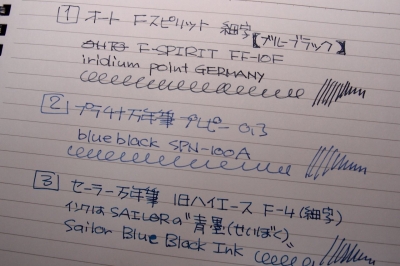 1 オート Fスピリット 細字【ブルーブラック】
OHTO F-SPIRIT FF-10F
iridium point GERMANY
2 プラチナ万年筆 プレピー 0.3
blueblack SPN-100A
3 セーラー万年筆 旧ハイエース F-4(細字)
インクはSAILORの"青墨(せいぼく)
Sailor Blue Black Ink